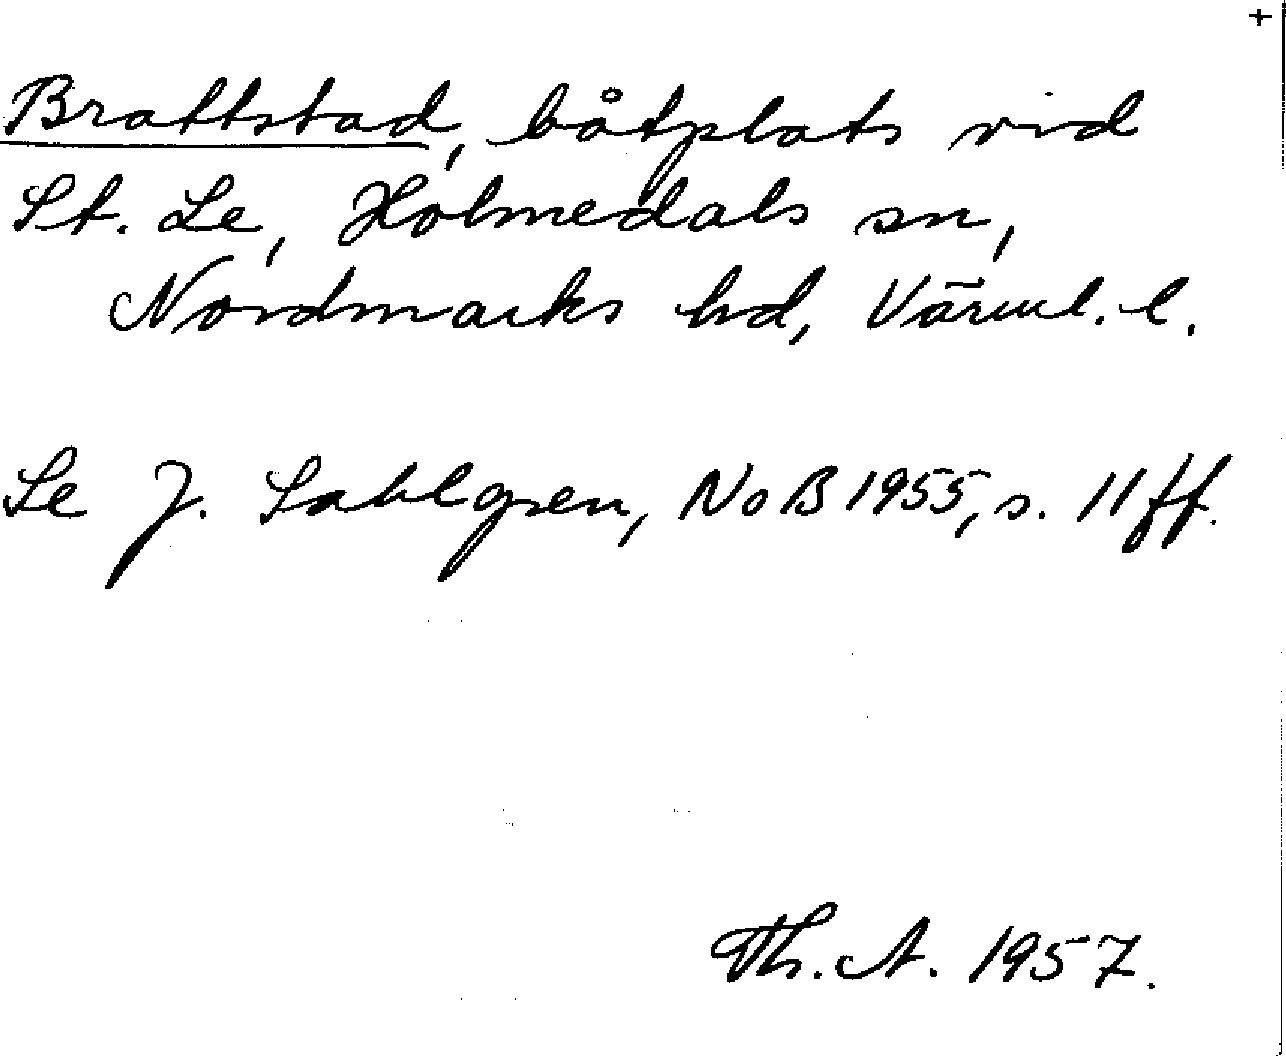 +
Brattstad, båtplats vid
St. Le, Holmedals sn,
Nordmarks hd, Värml. l.
Se J. Sahlgren, NoB 1955, s. 11 ff.
Th. A. 1957.